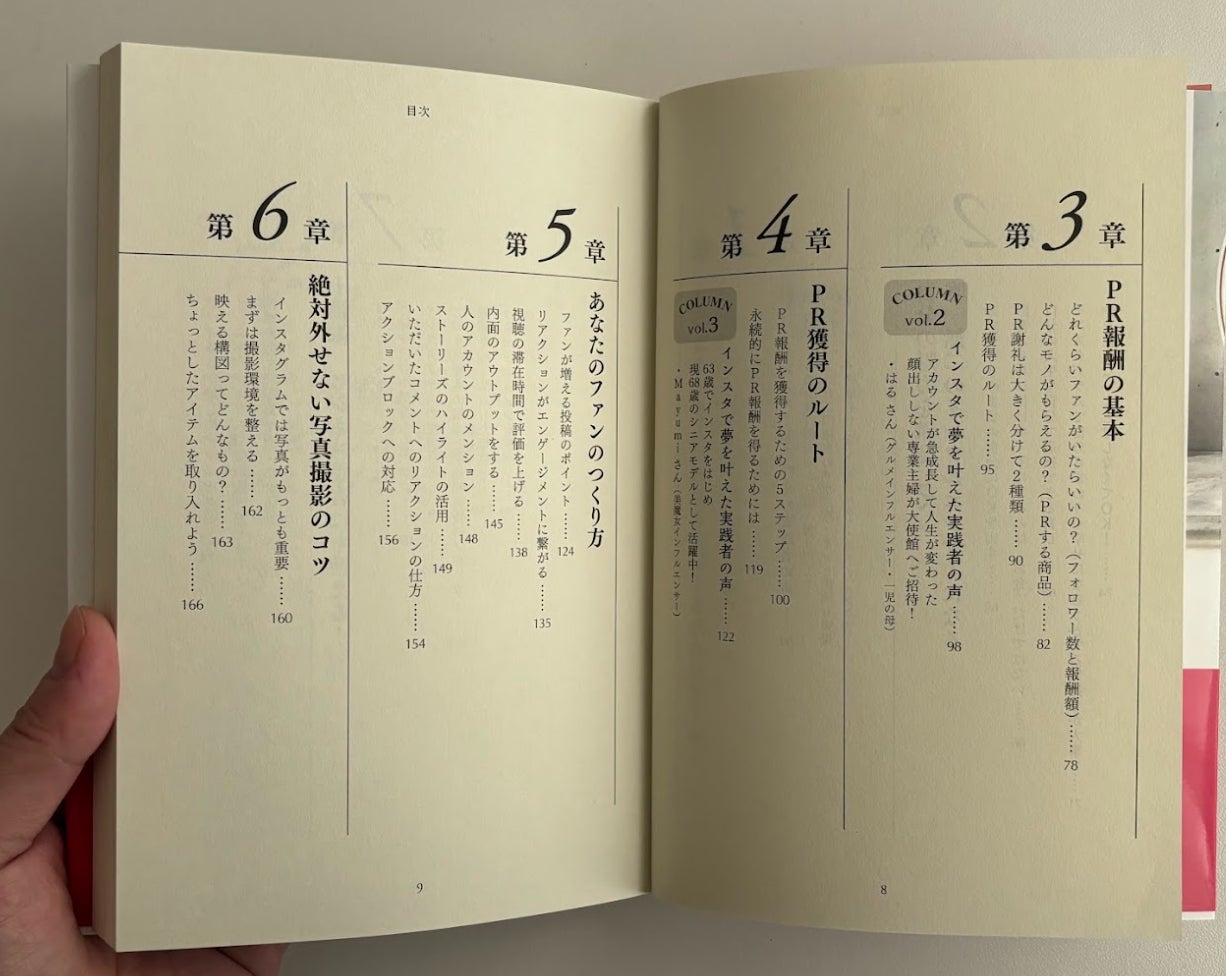 第3章
PR報酬の基本
どれくらいファンがいたらいいの?(フォロワー数と報酬額)……78
どんなモノがもらえるの?(PRする商品)……82
PR謝礼は大きく分けて2種類……90
PR獲得のルート……95
COLUMN
vol.2
インスタで夢を叶えた実践者の声……98
アカウントが急成長して人生が変わった
顔出ししない専業主婦が大使館へご招待!
・はるさん(グルメインフルエンサー・一児の母)
第4章
PR獲得のルート
PR報酬を獲得するための5ステップ……100
永続的にPR報酬を得るためには……119
COLUMN
vol.3
インスタで夢を叶えた実践者の声……122
63歳でインスタをはじめ
現68歳のシニアモデルとして活躍中!
・Mayumiさん(美魔女インフルエンサー)
8
目次
第5章
あなたのファンのつくり方
ファンが増える投稿のポイント……124
リアクションがエンゲージメントに繋がる……135
視聴の滞在時間で評価を上げる……138
内面のアウトプットをする……145
人のアカウントのメンション……148
ストーリーズのハイライトの活用……149
いただいたコメントへのリアクションの仕方……154
アクションブロックへの対応……156
第6章
絶対外せない写真撮影のコツ
インスタグラムでは写真がもっとも重要……160
まずは撮影環境を整える……162
映える構図ってどんなもの?……163
ちょっとしたアイテムを取り入れよう……166
9